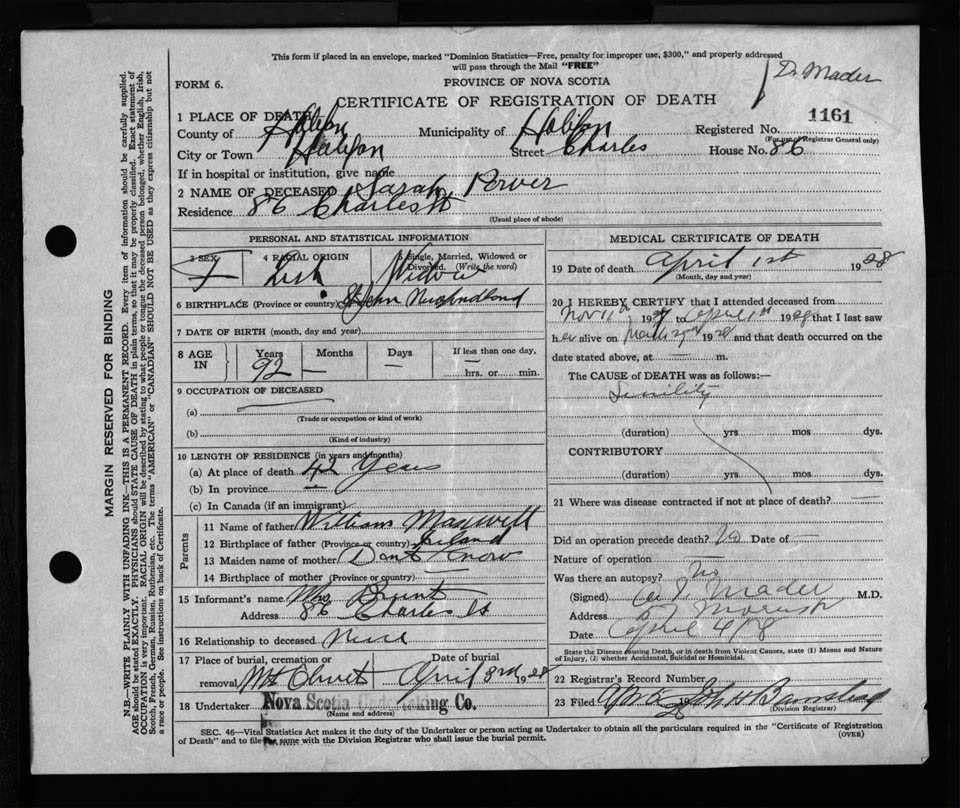 This form if placed in an envelope, marked "Dominion Statistics—Free, penalty for improper use, $300," and properly addressed
will pass through the Mail "FREE"
Dr Mader
FORM 6.
PROVINCE OF NOVA SCOTIA
CERTIFICATE OF REGISTRATION OF DEATH
1 PLACE OF DEATH
1161
County of Halifax Municipality of Halifax Registered No.
(For use of Registrar General only)
City or Town Halifax Street Charles House No. 86
If in hospital or institution, give name
2 NAME OF DECEASED Sarah Power
Residence 86 Charles St
(Usual place of abode)
PERSONAL AND STATISTICAL INFORMATION
3 SEX F
4 RACIAL ORIGIN Irish
5 Single, Married, Widowed or Divorced. (Write the word) Widow
6 BIRTHPLACE (Province or country) St John Newfoundland
7 DATE OF BIRTH (month, day and year)
8 AGE IN
Years Months Days If less than one day,
92 — — — hrs. or min.
9 OCCUPATION OF DECEASED
(a)
(Trade or occupation or kind of work)
(b)
(Kind of industry)
10 LENGTH OF RESIDENCE (in years and months)
(a) At place of death 42 Years
(b) In province —
(c) In Canada (if an immigrant)
Parents
11 Name of father William
12 Birthplace of father (Province or country) Ireland
13 Maiden name of mother Dont Know
14 Birthplace of mother (Province or country) —
15 Informant's name Mrs
Address 86 Charles St
16 Relationship to deceased Niece
17 Place of burial, cremation or Date of burial
removal Mt Olivet April 3rd 1928
18 Undertaker Nova Scotia Undertaking Co.
(Name and address)
MEDICAL CERTIFICATE OF DEATH
19 Date of death April 1st 1928
(Month, day and year)
20 I HEREBY CERTIFY that I attended deceased from
Nov 11th 1927 to April 1st 1928 that I last saw
her alive on March 1928 and that death occurred on the
date stated above, at — m.
The CAUSE of DEATH was as follows:—
Senility
(duration) yrs mos dys.
CONTRIBUTORY
(duration) yrs mos dys.
21 Where was disease contracted if not at place of death? —
Did an operation precede death? No Date of —
Nature of operation —
Was there an autopsy? No
(Signed) Mader M.D.
Address 57 Morris St
Date April 4/28
State the Disease causing Death, or in death from Violent Causes, state (1) Means and Nature
of Injury, (2) whether Accidental, Suicidal or Homicidal.
22 Registrar's Record Number
23 Filed John H Barnstead
(Division Registrar)
SEC. 46—Vital Statistics Act makes it the duty of the Undertaker or person acting as Undertaker to obtain all the particulars required in the "Certificate of Registration
of Death" and to file the same with the Division Registrar who shall issue the burial permit.
(OVER)
MARGIN RESERVED FOR BINDING
N.B.—WRITE PLAINLY WITH UNFADING INK—THIS IS A PERMANENT RECORD. Every item of information should be carefully supplied.
AGE should be stated EXACTLY. PHYSICIANS should STATE CAUSE OF DEATH in plain terms, so that it may be properly classified. Exact statement of
OCCUPATION is very important. RACIAL ORIGIN will be described by stating to what people or tongue the deceased person belonged, whether English, Irish,
Scotch, French, German, Russian, Ruthenian, etc. The terms "AMERICAN" or "CANADIAN" SHOULD NOT BE USED as they express citizenship but not
a race or people. See instructions on back of Certificate.